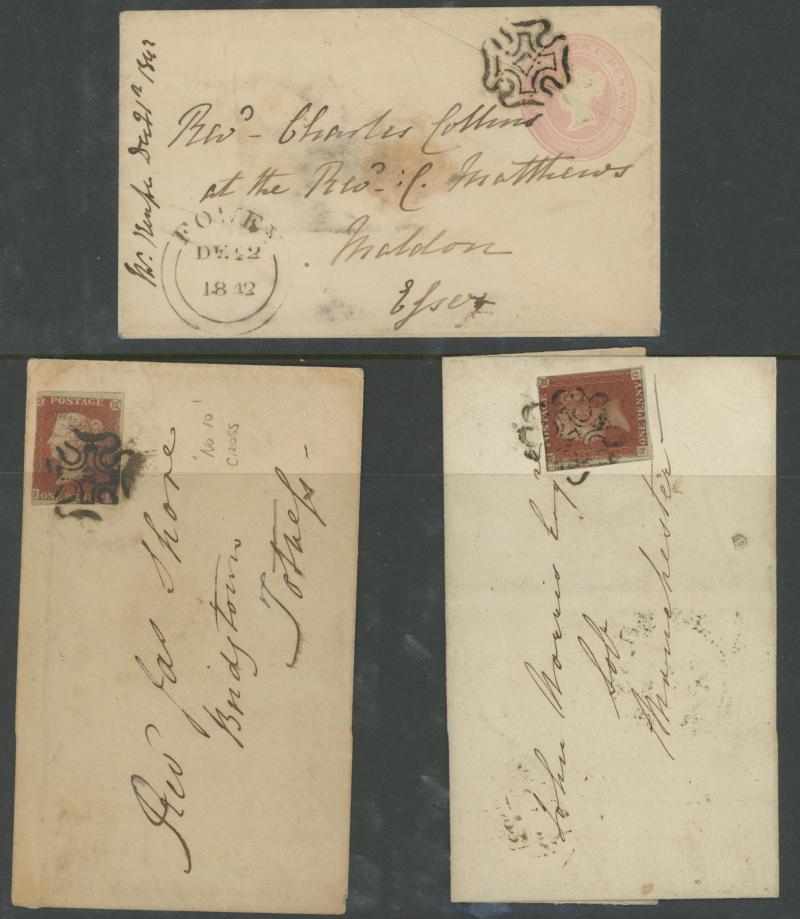 ONE PENNY
Revd- Charles Collins
at the Revd- C. Matthews
Maldon
Essex
Decr 21st 1842
FOWEY
DE 22
1842
POSTAGE
'No 10'
CROSS
Rev Jas Shore
Bridgtown
Totness-
POSTAGE
ONE PENNY
John Morris Esqre
Solr
Manchester-